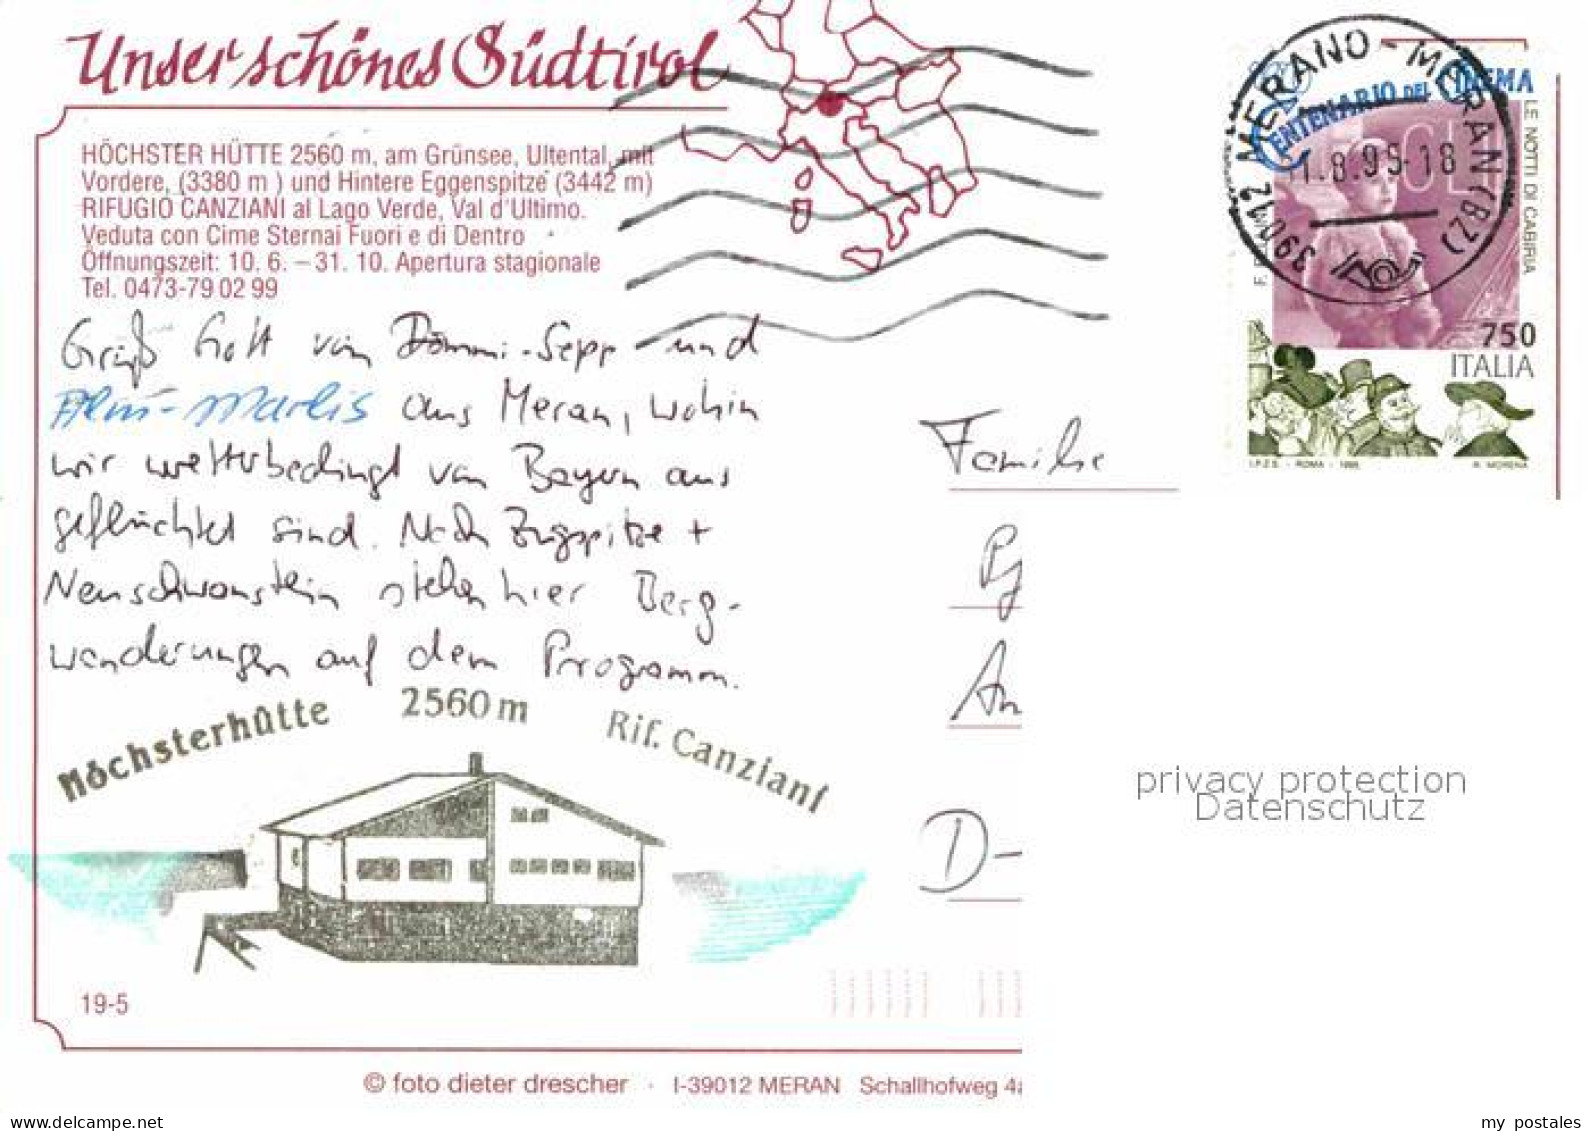 Unser schönes Südtirol
HÖCHSTER HÜTTE 2560 m, am Grünsee, Ultental, mit
Vordere, (3380 m ) und Hintere Eggenspitze (3442 m)
RIFUGIO CANZIANI al Lago Verde, Val d'Ultimo.
Veduta con Cime Sternai Fuori e di Dentro
Öffnungszeit: 10. 6. – 31. 10. Apertura stagionale
Tel. 0473-79 02 99
Grüß Gott vom -Sepp und
-Marlis aus Meran, wohin
wir wetterbedingt von Bayern aus
geflüchtet sind. Nach Zugspitze +
Neuschwanstein stehen hier Berg-
wanderungen auf dem Programm.
Höchsterhütte 2560 m Rif. Canziani
19-5
© foto dieter drescher · I-39012 MERAN Schallhofweg 4a
39012 MERANO - MERAN (BZ)
1.8.95-18
CENTENARIO DEL CINEMA
LE NOTTI DI CABIRIA
750
ITALIA
I.P.Z.S. - ROMA - 1995
R. MORENA
Familie
D-
privacy protection
Datenschutz
www.delcampe.net
my_postales